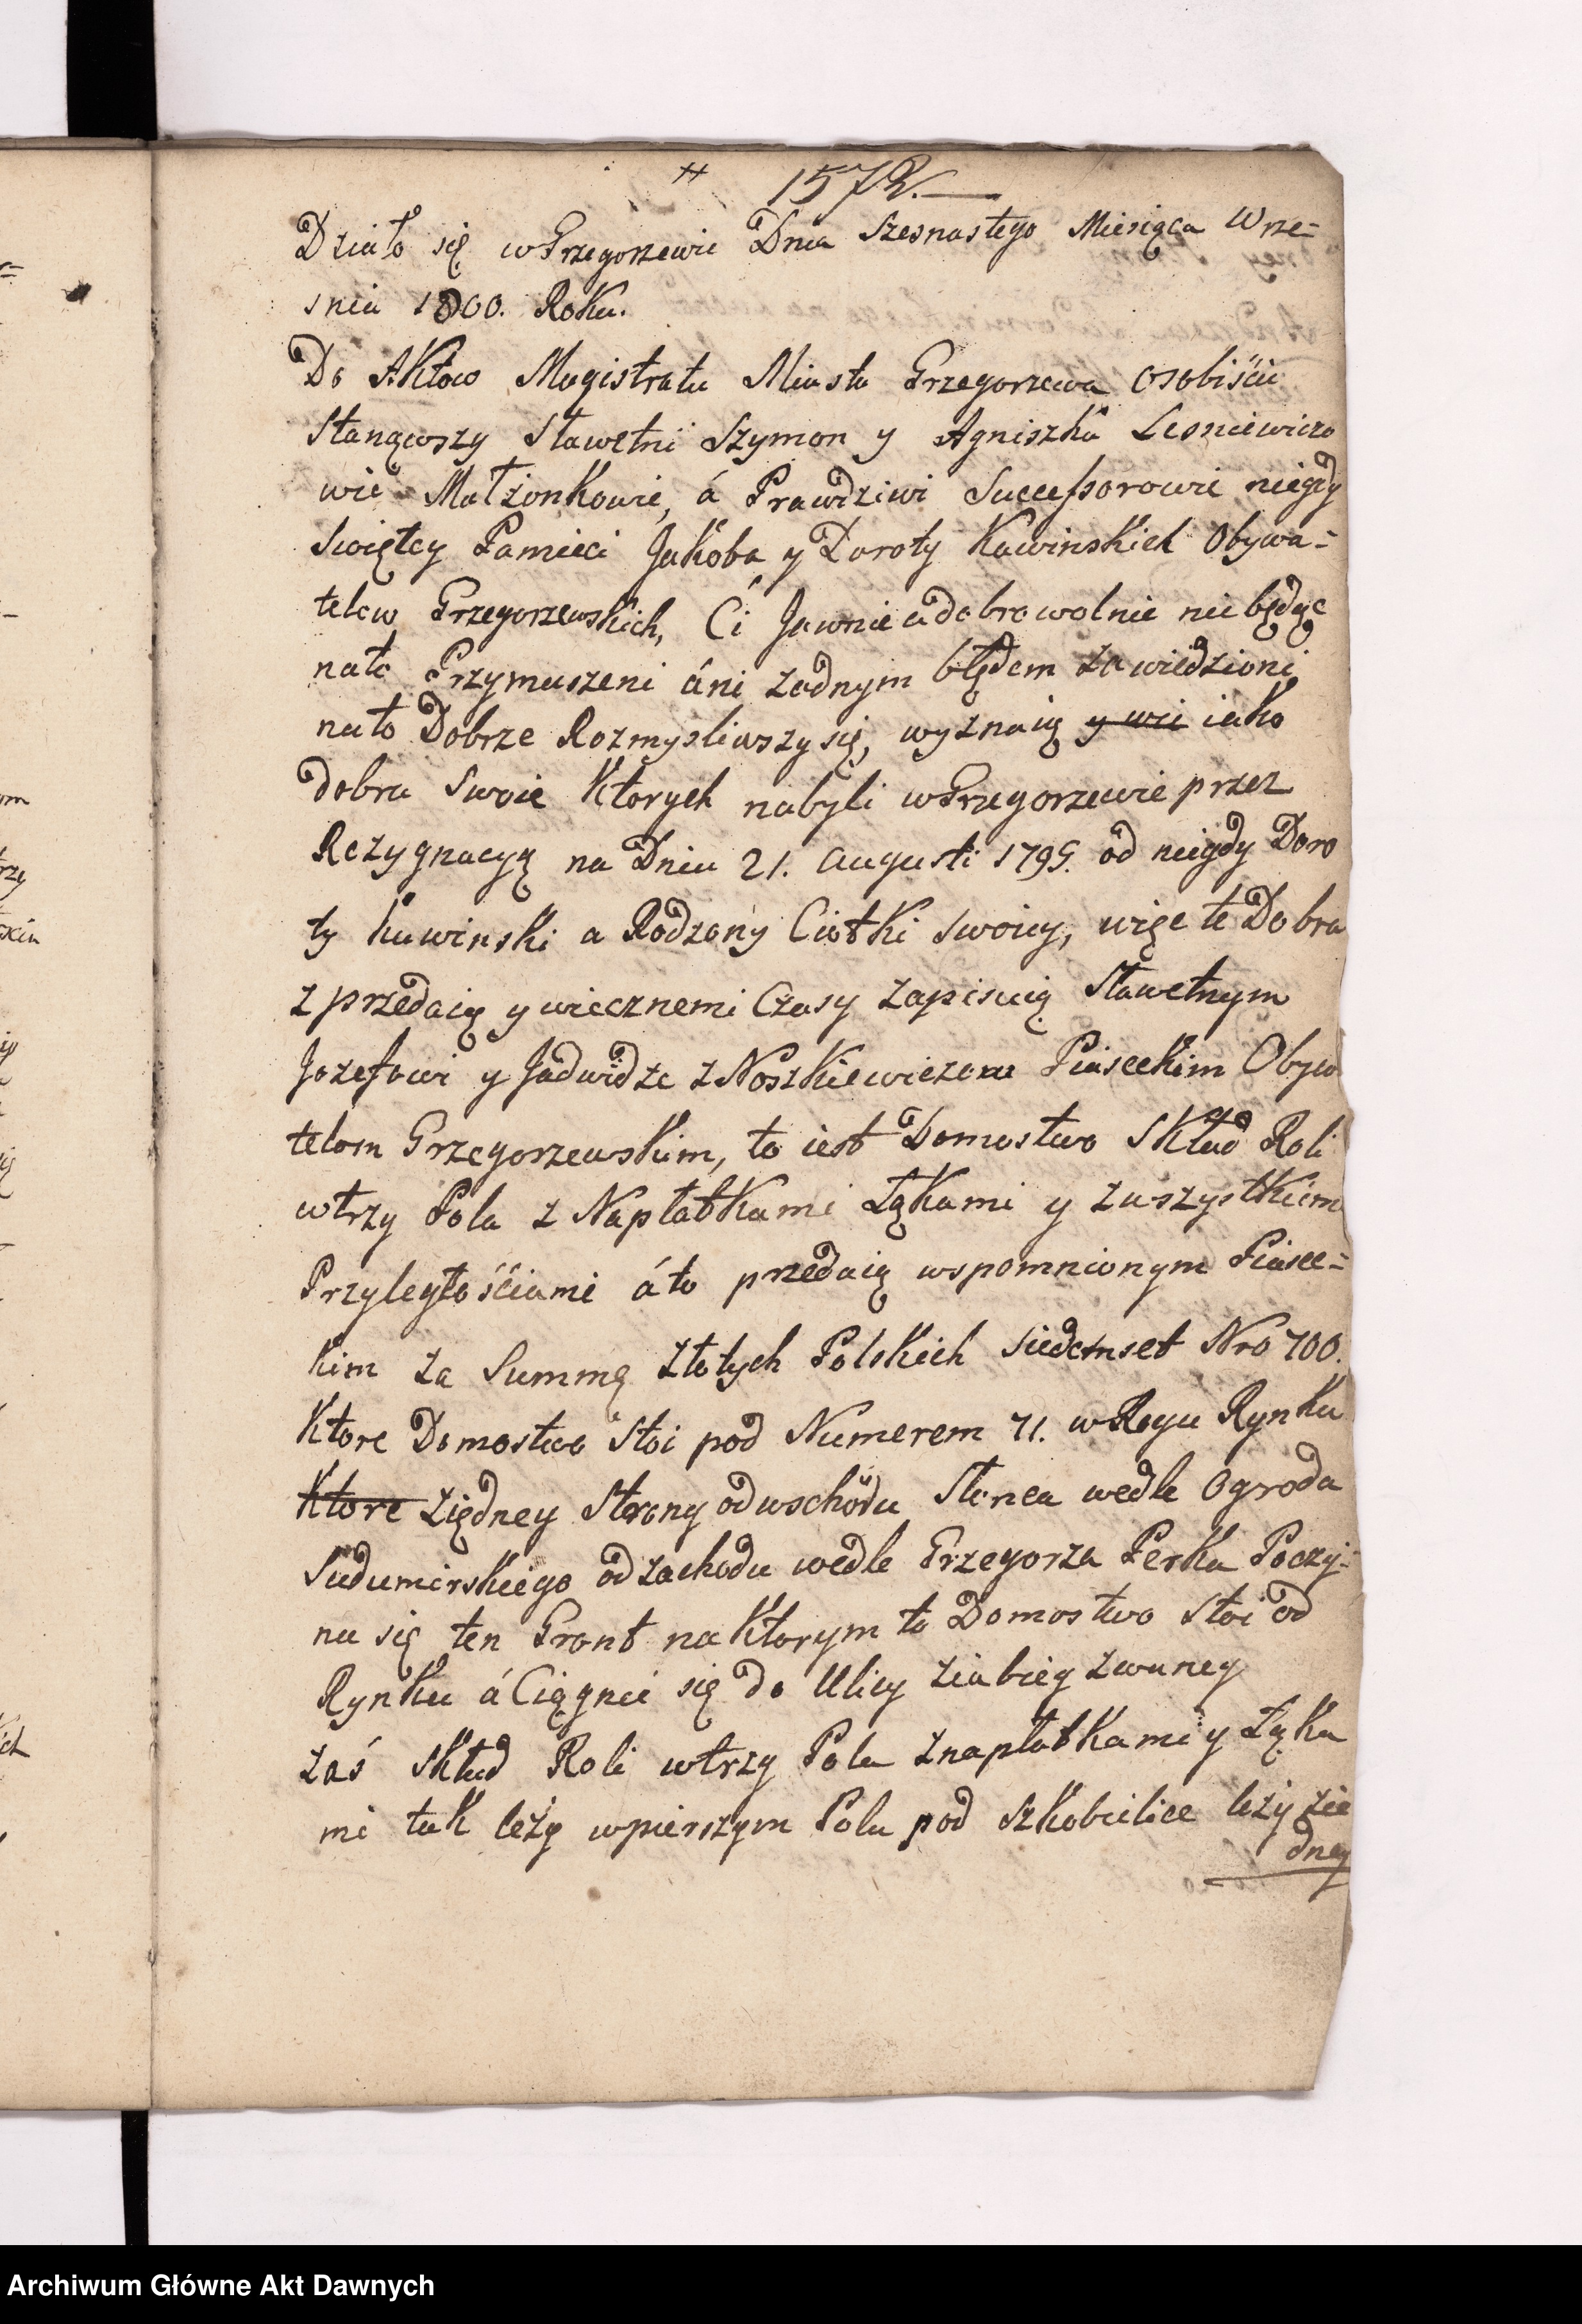 1572.
Działo się w Grzegorzewie Dnia Szesnastego Miesiąca Wrze=
snia 1800. Roku.
Do Aktow Magistratu Miasta Grzegorzewa osobiście
Stanąwszy Sławetni Szymon y Agniszka Lesniewiczo
wie Małżonkowie, á Prawdziwi Successorowie niegdy
Swiętey Pamieci Jakoba y Doroty Kawinskich Obywa=
telow Grzegorzewskich, Ci Jawnie a dobrowolnie nie będąc
nato Przymuszeni áni żadnym błędem zawiedzioni
nato Dobrze Rozmysliwszy się, wyznaią y wzi iako
dobra Swoie Ktorych nabyli w Grzegorzewie przez
Rezygnacyą na Dniu 21. Augusti 1795. od niegdy Doro
ty Kawinski a Rodzony Ciotki swoiey, więc te Dobra
zprzedaią y wiecznemi Czasy zapisuią Sławetnym
Jozefowi y Jadwidze z Noszkiewiczow Piaseckim Obyw
telom Grzegorzewskim, to iest Domostwo Skład Roli
wtrzy Pola z Napłatkami Łąkami y zwszystkiem
Przyległościami áto przedaią wspomnionym Piasec=
kim za Summą złotych Polskich siedemset Nro 700.
Ktore Domostwo Stoi pod Numerem 71. w Rogu Rynku
Ktore ziędney Strony odwschodu Słonca wedle Ogroda
Sudumirskiego od zachodu wedle Grzegorza Perka Poczy=
na się ten Gront na Ktorym to Domostwo Stoi od
Rynku á Ciągnie się do Ulicy żiabiey zwaney
zaś Skład Roli wtrzy Pola znapłatkami y Łąka
mi tak leży wpierszym Polu pod Szkobielice leży zie
dney
Archiwum Główne Akt Dawnych